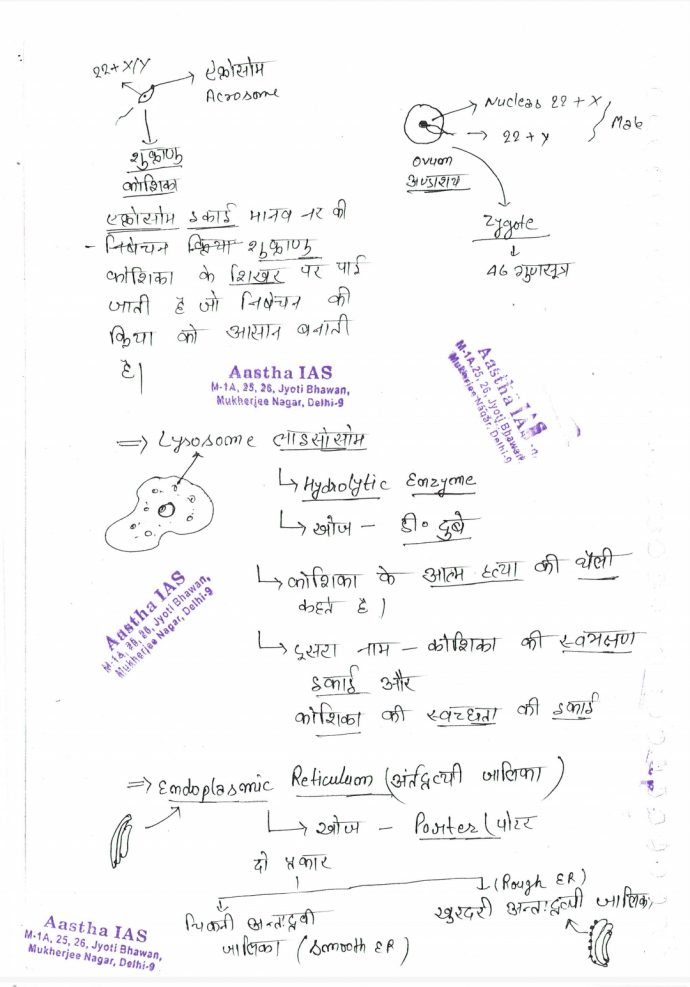 22+ X/Y
एक्रोसोम
Acrosome
शुक्राणु
कोशिका
Nucleas 22 + X
22 + Y
Male
Ovum
अण्डाशय
Zygote
46 गुणसूत्र
एक्रोसोम इकाई मानव नर की
- निषेचन क्रिया शुक्राणु
कोशिका के शिखर पर पाई
जाती है जो निषेचन की
क्रिया को आसान बनाती
है|
Aastha IAS
M-1A, 25, 26, Jyoti Bhawan,
Mukherjee Nagar, Delhi-9
Aastha IAS
M-1A, 25, 26, Jyoti Bhawan,
Mukherjee Nagar, Delhi-9
⇒ Lysosome लाइसोसोम
Hydrolytic Enzyme
खोज - डी० दुबे
कोशिका के आत्म हत्या की थैली
कहते है |
Aastha IAS
M-1A, 25, 26, Jyoti Bhawan,
Mukherjee Nagar, Delhi-9
दूसरा नाम - कोशिका की स्वंभक्षण
इकाई और
कोशिका की स्वच्छता की इकाई
⇒ Endoplasmic Reticulum (अंर्तद्रव्यी जालिका)
खोज - Porter (पोटर
दो प्रकार
चिकनी अन्तःद्रवी
जालिका (Smooth ER)
(Rough ER)
खुरदरी अन्तःद्रव्यी जालिका
Aastha IAS
M-1A, 25, 26, Jyoti Bhawan,
Mukherjee Nagar, Delhi-9